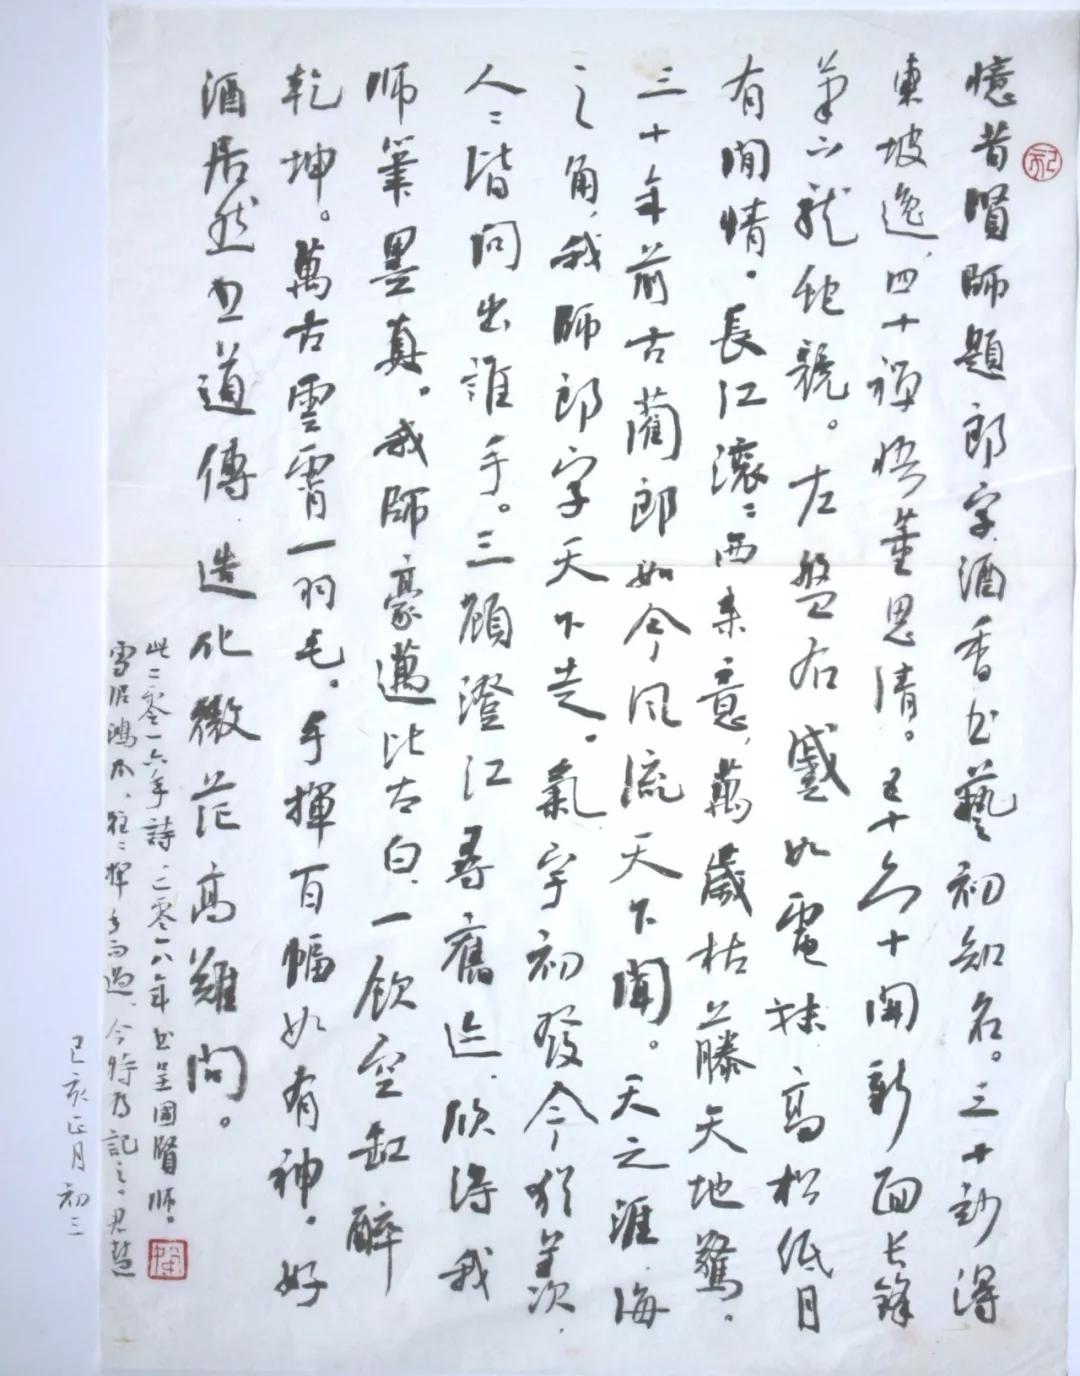 憶昔賢師題郎字酒香書藝初知名。三十妙得
東坡逸、四十禪悟董思清。五十六十開新面長鋒
筆下龍蛇競。左盤右蹙如電抹高松低月
有閒情。長江滾〻西來意、萬歲枯藤天地驚。
三十年前古藺郎如今風流天下聞。天之涯海
之角、我師郎字天下走。氣宇初發今猶羨、
人〻皆問出誰手。三顧澄江尋舊迹、欣得我
師筆墨真。我師豪邁比太白、一飲空缸醉
乾坤。萬古雲霄一羽毛。手揮百幅如有神。好
酒居然也道傳、造化微茫高難問。
此二零一六年詩、二零一八年書呈國賢師。
雪泥鴻爪、往〻揮手而過、今特為記之。君慧
己亥正月初三